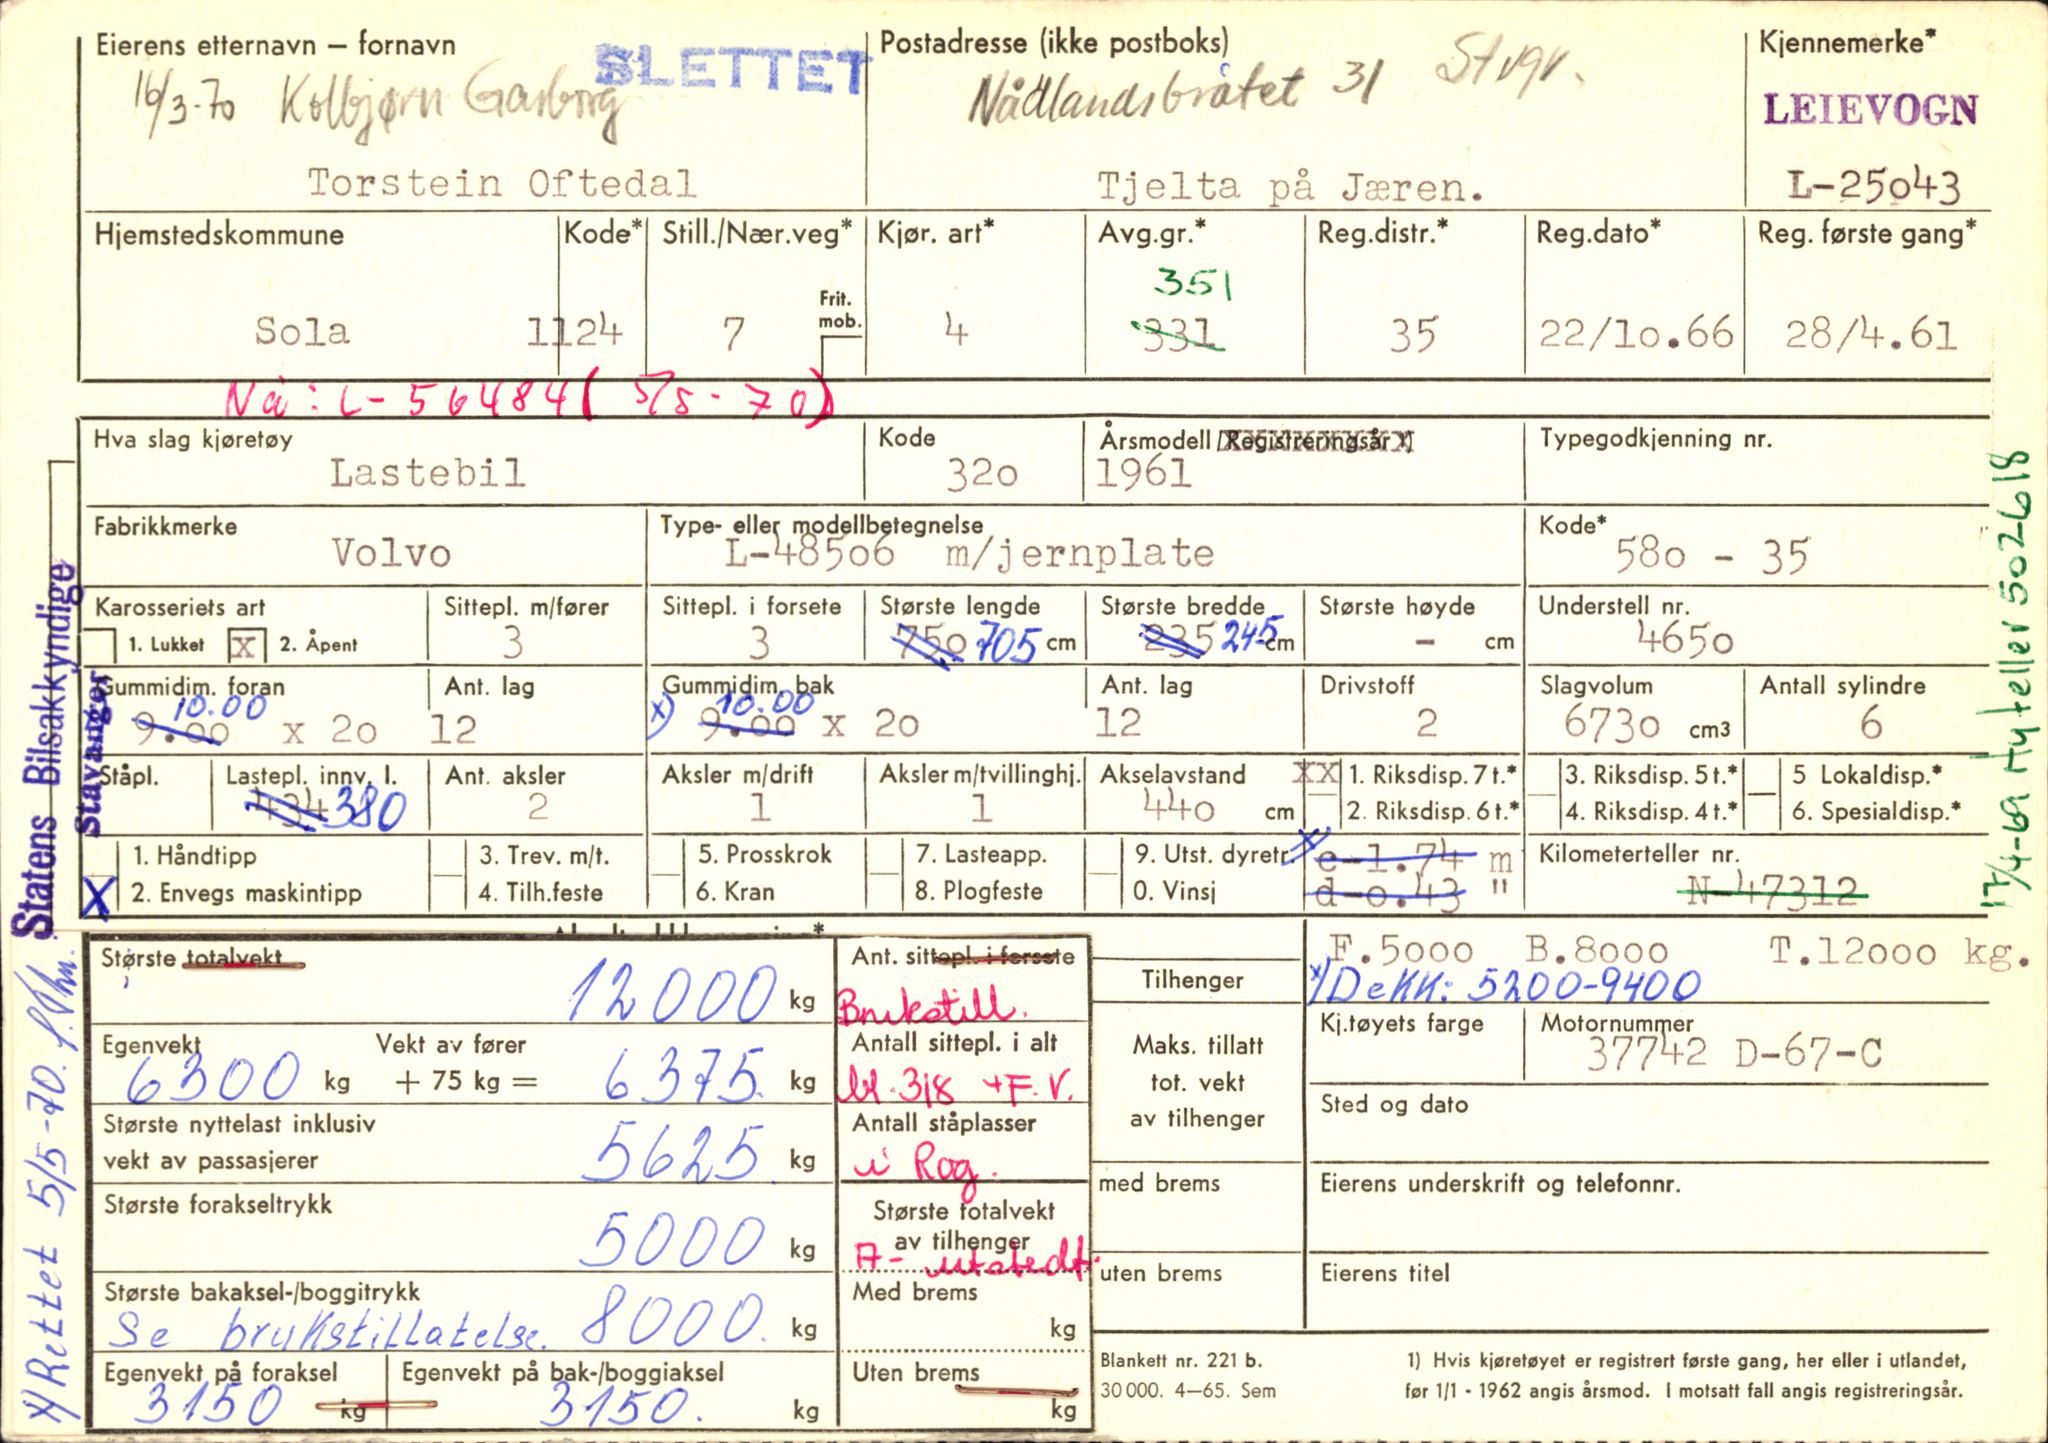 Eierens etternavn – fornavn SLETTET
Postadresse (ikke postboks)
Kjennemerke*
16/3-70 Kolbjørn Garborg
Nådlandsbråtet 31 Stvgr.
LEIEVOGN
Torstein Oftedal
Tjelta på Jæren.
L-25043
Hjemstedskommune Kode* Still./Nær.veg* Kjør. art* Avg.gr.* Reg.distr.* Reg.dato* Reg. første gang*
351
Frit. mob.
Sola 1124 7 4 331 35 22/10.66 28/4.61
Nå: L-56484 (5/5-70)
Hva slag kjøretøy Kode Årsmodell/Registreringsår 1) Typegodkjenning nr.
Lastebil 320 1961
Fabrikkmerke Type- eller modellbetegnelse Kode*
Volvo L-48506 m/jernplate 580 - 35
Karosseriets art Sittepl. m/fører Sittepl. i forsete Største lengde Største bredde Største høyde Understell nr.
1. Lukket X 2. Åpent 3 3 750 705 cm 235 245 cm - cm 4650
Gummidim. foran Ant. lag Gummidim. bak Ant. lag Drivstoff Slagvolum Antall sylindre
10.00 x) 10.00
9.00 x 20 12 9.00 x 20 12 2 6730 cm3 6
Ståpl. Lastepl. innv. l. Ant. aksler Aksler m/drift Aksler m/tvillinghj. Akselavstand XX 1. Riksdisp. 7 t.* 3. Riksdisp. 5 t.* 5 Lokaldisp.*
434 380 2 1 1 440 cm 2. Riksdisp. 6 t.* 4. Riksdisp. 4 t.* 6. Spesialdisp.*
1. Håndtipp 3. Trev. m/t. 5. Prosskrok 7. Lasteapp. 9. Utst. dyretr. x e-1.74 m Kilometerteller nr.
X 2. Envegs maskintipp 4. Tilh.feste 6. Kran 8. Plogfeste 0. Vinsj d-0.43 " N-47312
17/4-69 Ny teller 502618
Statens Bilsakkyndige
Stavanger
x) Rettet 5/5-70.
Største totalvekt 12000 kg
Egenvekt Vekt av fører
6300 kg + 75 kg = 6375 kg
Største nyttelast inklusiv
vekt av passasjerer 5625 kg
Største forakseltrykk
5000 kg
Største bakaksel-/boggitrykk
Se brukstillatelse. 8000. kg
Egenvekt på foraksel Egenvekt på bak-/boggiaksel
3150 kg 3150. kg
Ant. sittepl. i forsete
Brukstill.
Antall sittepl. i alt
bl. 318 + F.V.
Antall ståplasser
i Rog.
Største totalvekt
av tilhenger
A- utstedt.
Med brems
kg
Uten brems
kg
Tilhenger
Maks. tillatt
tot. vekt
av tilhenger
med brems
uten brems
F.5000 B.8000 T.12000 kg.
x) DeKK: 5200-9400
Kj.tøyets farge Motornummer
37742 D-67-C
Sted og dato
Eierens underskrift og telefonnr.
Eierens titel
Blankett nr. 221 b.
30 000. 4–65. Sem
1) Hvis kjøretøyet er registrert første gang, her eller i utlandet,
før 1/1 - 1962 angis årsmod. I motsatt fall angis registreringsår.